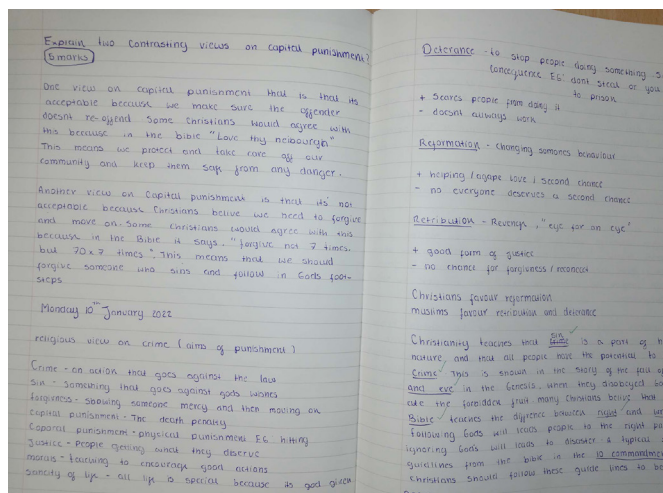 Explain two Contrasting views on capital punishment?
5 marks
One view on capital punishment that is that its
acceptable because we make sure the offender
doesnt re-offend. Some Christians would agree with
this because in the bible "Love thy neibourgh"
This means we protect and take care off our
community and keep them safe from any danger.
Another view on Capital punishment is that its' not
acceptable because Christians belive we need to forgive
and move on. Some Christians would agree with this
because in the Bible it says, "forgive not 7 times,
but 70x7 times". This means that we should
forgive someone who sins and follow in Gods foot-
steps
Monday 10th January 2022
religious view on crime (aims of punishment)
Crime - an action that goes against the law
Sin - Something that goes against gods wishes
forgivness - showing someone mercy and then moving on
capital punishment - The death penalty
Coporal punishment - physical punishment EG hitting
Justice - People getting what they deserve
morals - teaching to encourage good actions
Sancity of life - all life is special because its god given
Deterance - to stop people doing something
Concequence EG: dont steal or you
to prison
+ Scares people from doing it
- doesnt always work
Reformation - Changing somones behaviour
+ helping / agape love / second chance
- no everyone deserves a second chance
Retribution - Revenge, "eye for an eye"
+ good form of justice
- no chance for forgivness / reconcile
Christians favour reformation
muslims favour retribution and deterance
Christianity teaches that sin is a part of
nature, and that all people have the potential to
Crime. This is shown in the story of the fall of
and eve in the Genesis, when they disobeyed
ate the forbidden fruit many Christians belive that
Bible teaches the diffrence between right and
following Gods will leads people to the right
ignoring Gods will leads to disaster & typical
guidlines from the bible in the 10 commandments
Christians should follow these guide lines to be